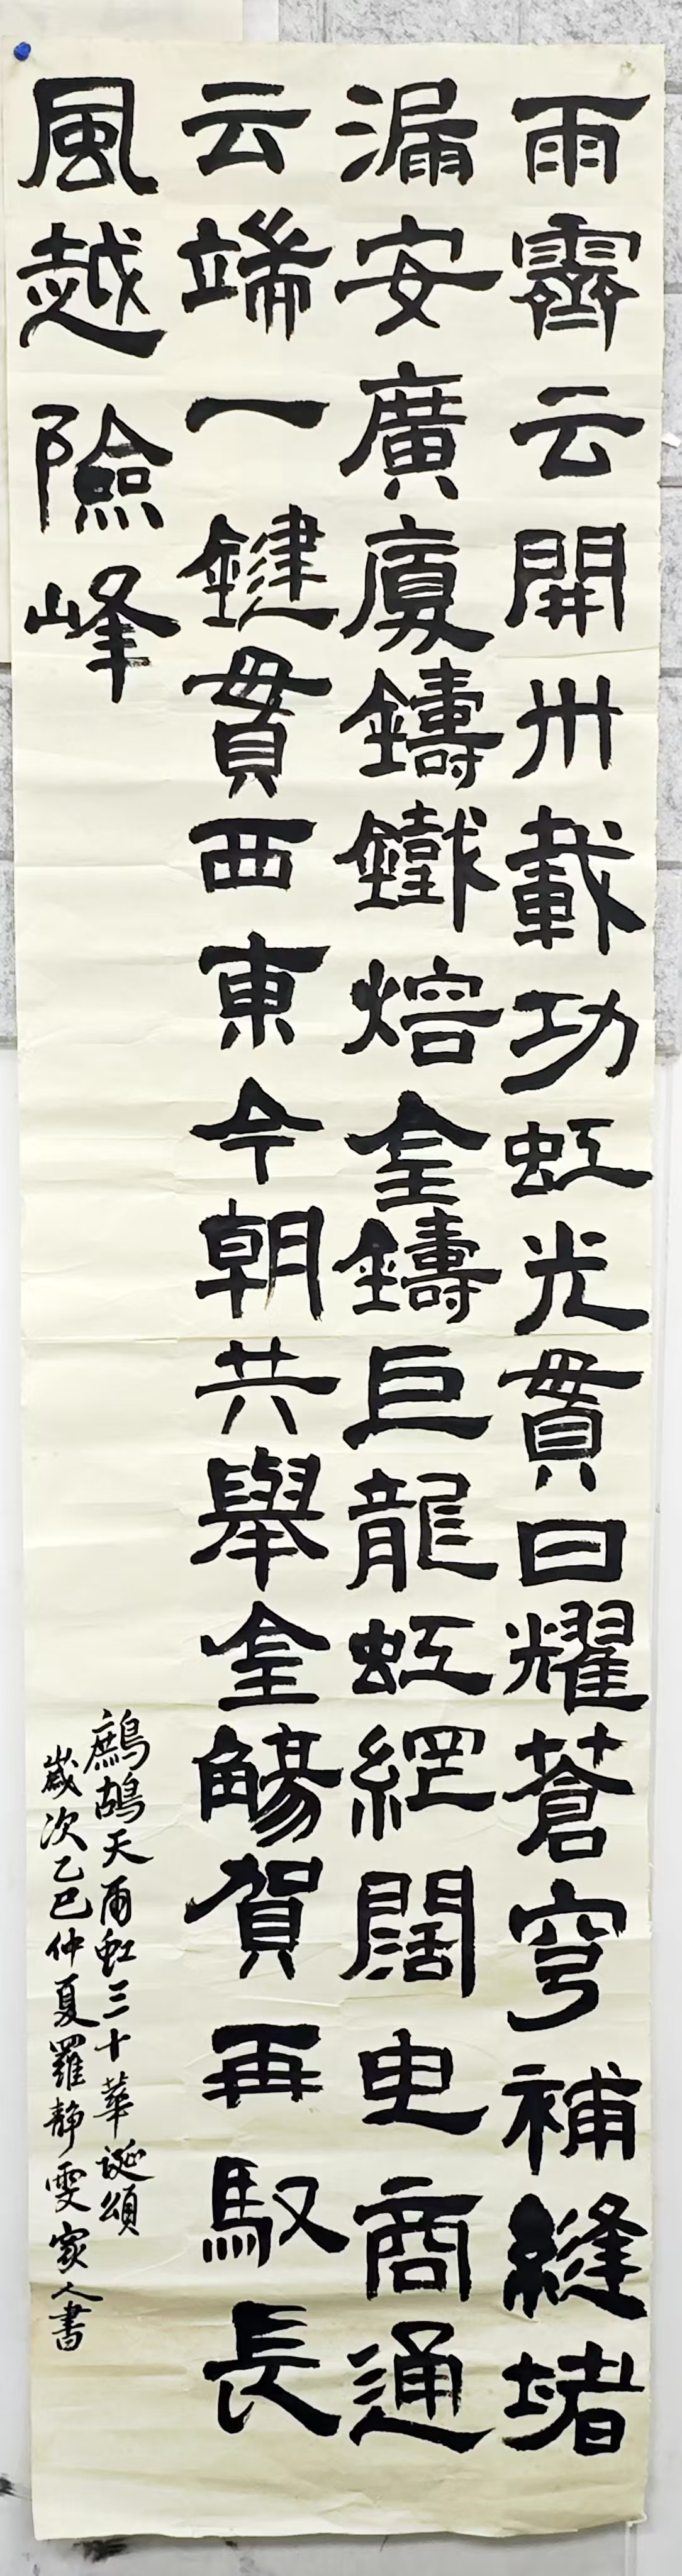 雨霽云開卅載功虹光貫日耀蒼穹補縫堵
漏安廣廈鑄鐵熔金鑄巨龍虹網闊电商通
云端一鍵貫西東今朝共舉金觴賀再馭長
風越險峰
鷓鴣天雨虹三十華誕頌
歲次乙巳仲夏羅静雯家人書